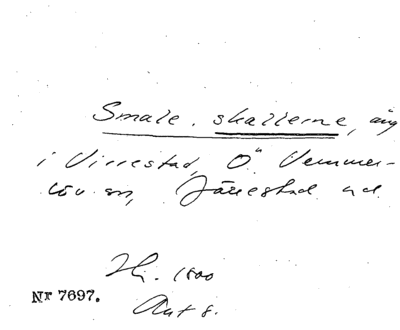 Smale. skallerne, äng
i Virrestad, Ö Vemmer-
löv sn, Järrestad hd.
Hi. 1800
Akt 8.
Nr 7697.